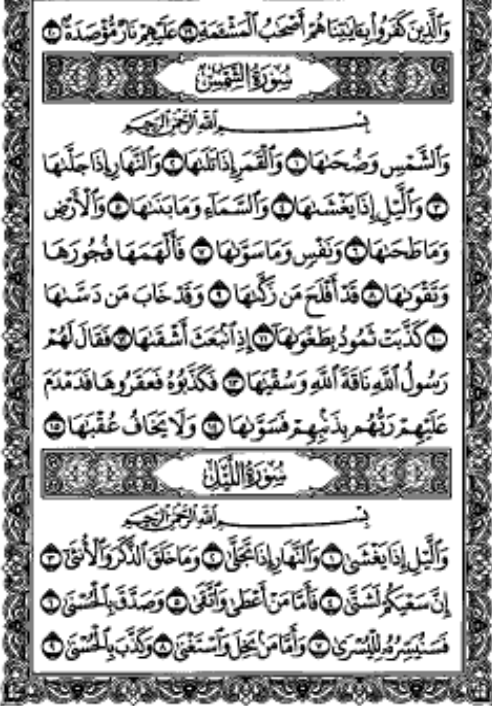 وَٱلَّذِينَ كَفَرُوا۟ بِـَٔايَٰتِنَا هُمْ أَصْحَٰبُ ٱلْمَشْـَٔمَةِ ١٩ عَلَيْهِمْ نَارٌ مُّؤْصَدَةٌۢ ٢٠
سُورَةُ الشَّمْسِ
بِسْمِ ٱللَّهِ ٱلرَّحْمَٰنِ ٱلرَّحِيمِ
وَٱلشَّمْسِ وَضُحَىٰهَا ١ وَٱلْقَمَرِ إِذَا تَلَىٰهَا ٢ وَٱلنَّهَارِ إِذَا جَلَّىٰهَا
٣ وَٱلَّيْلِ إِذَا يَغْشَىٰهَا ٤ وَٱلسَّمَآءِ وَمَا بَنَىٰهَا ٥ وَٱلْأَرْضِ
وَمَا طَحَىٰهَا ٦ وَنَفْسٍ وَمَا سَوَّىٰهَا ٧ فَأَلْهَمَهَا فُجُورَهَا
وَتَقْوَىٰهَا ٨ قَدْ أَفْلَحَ مَن زَكَّىٰهَا ٩ وَقَدْ خَابَ مَن دَسَّىٰهَا
١٠ كَذَّبَتْ ثَمُودُ بِطَغْوَىٰهَآ ١١ إِذِ ٱنۢبَعَثَ أَشْقَىٰهَا ١٢ فَقَالَ لَهُمْ
رَسُولُ ٱللَّهِ نَاقَةَ ٱللَّهِ وَسُقْيَٰهَا ١٣ فَكَذَّبُوهُ فَعَقَرُوهَا فَدَمْدَمَ
عَلَيْهِمْ رَبُّهُم بِذَنۢبِهِمْ فَسَوَّىٰهَا ١٤ وَلَا يَخَافُ عُقْبَٰهَا ١٥
سُورَةُ اللَّيْلِ
بِسْمِ ٱللَّهِ ٱلرَّحْمَٰنِ ٱلرَّحِيمِ
وَٱلَّيْلِ إِذَا يَغْشَىٰ ١ وَٱلنَّهَارِ إِذَا تَجَلَّىٰ ٢ وَمَا خَلَقَ ٱلذَّكَرَ وَٱلْأُنثَىٰٓ ٣
إِنَّ سَعْيَكُمْ لَشَتَّىٰ ٤ فَأَمَّا مَنْ أَعْطَىٰ وَٱتَّقَىٰ ٥ وَصَدَّقَ بِٱلْحُسْنَىٰ ٦
فَسَنُيَسِّرُهُۥ لِلْيُسْرَىٰ ٧ وَأَمَّا مَنۢ بَخِلَ وَٱسْتَغْنَىٰ ٨ وَكَذَّبَ بِٱلْحُسْنَىٰ ٩